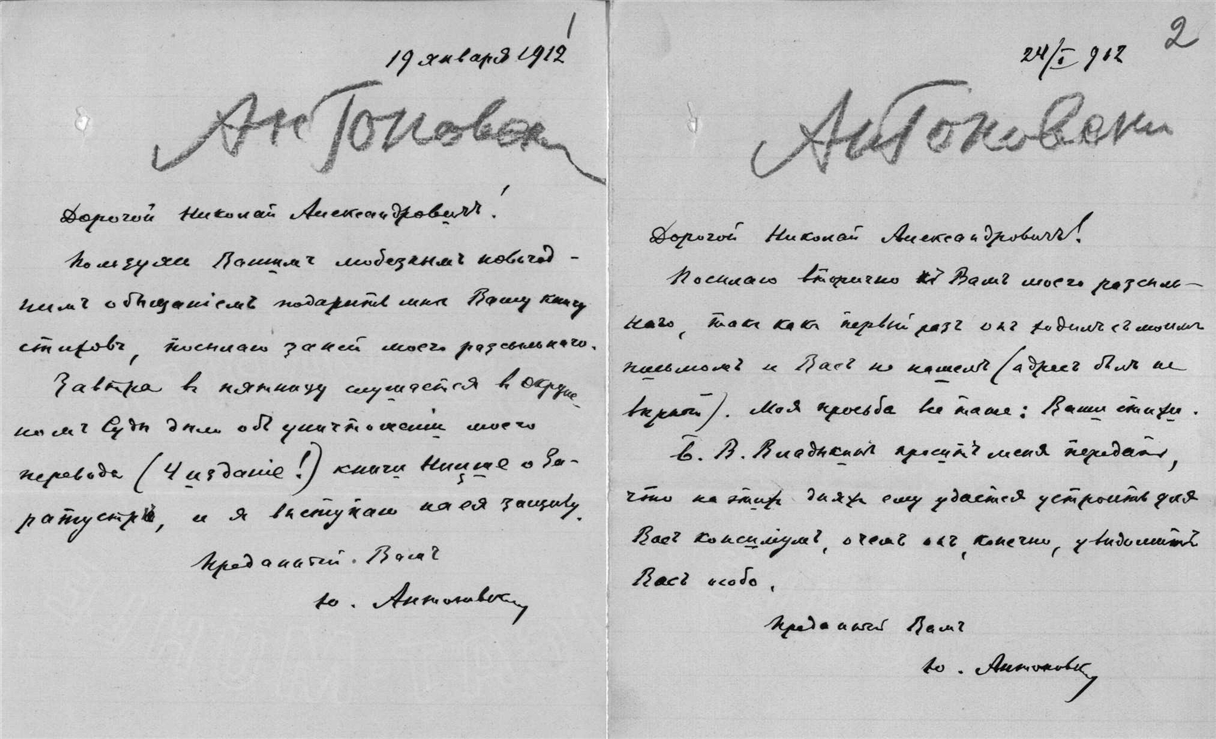 1
19 января 1912
Антоновски
Дорогой Николай Александровичъ!
Пользуясь Вашимъ любезнымъ новогод-
нимъ обѣщаніемъ подарить мнѣ Вашу книгу
стиховъ, посылаю за ней моего разсыльного.
Завтра въ пятницу слушается въ Окруж-
номъ Судѣ дѣло объ уничтоженіи моего
перевода (4 изданіе!) книги Ницше о За-
ратустрѣ, и я выступаю на ея защиту.
Преданный Вамъ
Ю. Антоновск
2
24/I 912
Антоновски
Дорогой Николай Александровичъ!
Посылаю вторично къ Вамъ моего разсыль-
наго, такъ какъ первый разъ онъ ходилъ съ моимъ
письмомъ и Васъ не нашелъ (адресъ былъ не
вѣрный). Моя просьба все таже: Ваши стихи.
Б. В. Владыкинъ проситъ меня передать,
что на этихъ дняхъ ему удастся устроить для
Васъ консиліумъ, о чемъ онъ, конечно, увѣдомитъ
Васъ особо.
Преданный Вамъ
Ю. Антоновск